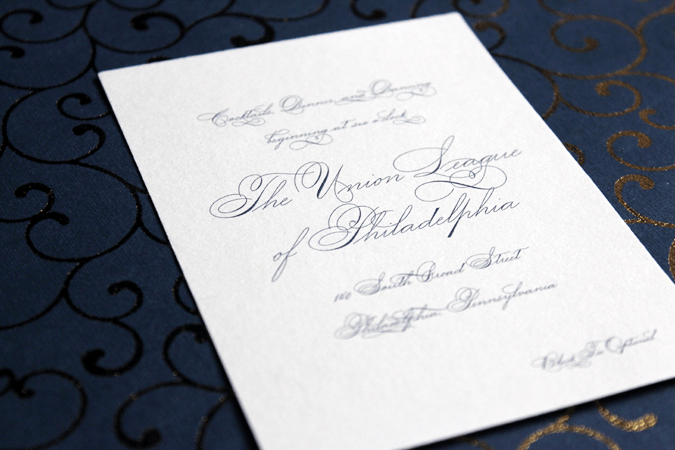 Cocktails, Dinner and Dancing
beginning at six o'clock
The Union League
of Philadelphia
140 South Broad Street
Philadelphia, Pennsylvania
Black Tie Optional